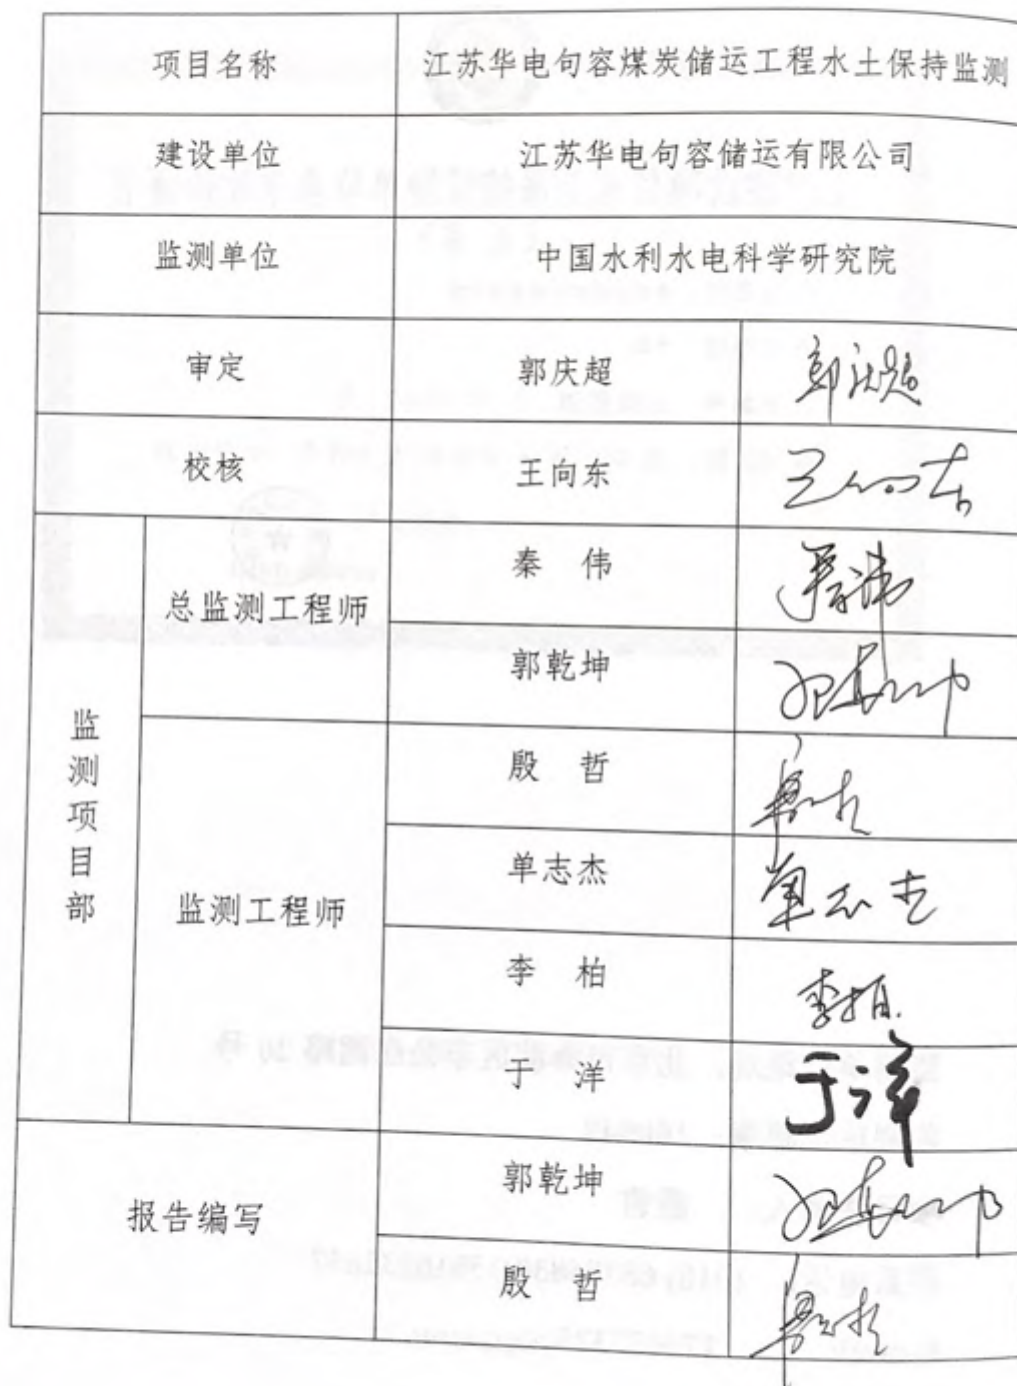 项目名称 江苏华电句容煤炭储运工程水土保持监测
建设单位 江苏华电句容储运有限公司
监测单位 中国水利水电科学研究院
审定 郭庆超 郭庆超
校核 王向东 王向东
监测项目部
总监测工程师
秦 伟 秦伟
郭乾坤 郭乾坤
监测工程师
殷 哲 殷哲
单志杰 单志杰
李 柏 李柏
于 洋 于洋
报告编写
郭乾坤 郭乾坤
殷 哲 殷哲